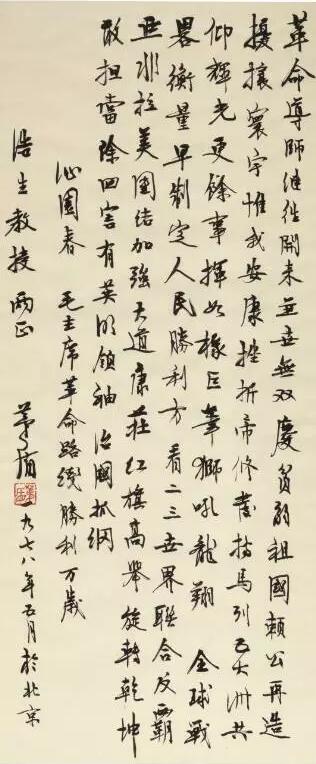 革命導師继往開來並世無双慶貧弱祖國賴公再造
擾攘寰宇惟我安康挫折帝修發揚馬列五大洲共
仰輝光更餘事揮如椽巨筆獅吼龍翔 全球戰
畧衡量早制定人民勝利方看二三世界聯合反霸
亞非拉美團结加強大道康莊红旗高舉旋轉乾坤
敢担當除四害有英明領袖治國抓纲
沁園春 毛主席革命路綫勝利万歲
浩生教授兩正
茅盾 一九七八年五月於北京